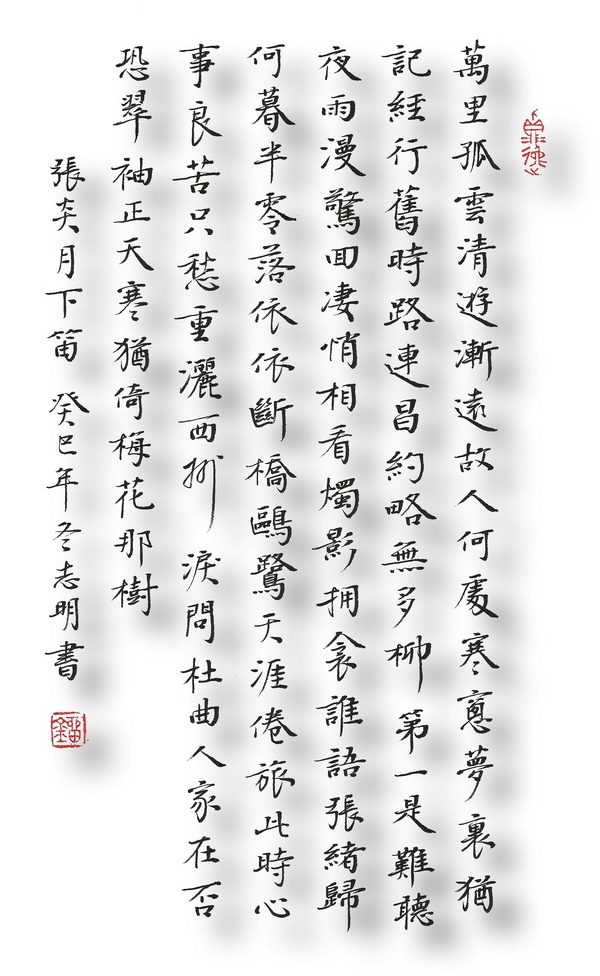 萬里孤雲清遊漸遠故人何處寒窻夢裏猶
記經行舊時路連昌約略無多柳 第一是難聽
夜雨漫驚囬凄悄相看燭影拥衾誰語張緒歸
何暮半零落依依斷橋鷗鷺天涯倦旅此時心
事良苦只愁重灑西州 淚問杜曲人家在否
恐翠袖正天寒猶倚梅花那樹
張炎月下笛 癸巳年冬志明書